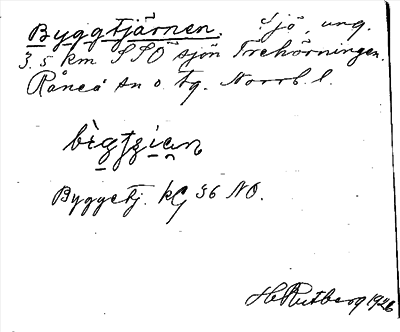 Byggtjärnen. Sjö, ung.
3.5 km SSO sjön Trehörningen.
Råneå sn o. tg. Norrb. l.
bìgtȿian
Byggetj. kG 36 NO.
H Rutberg 1926